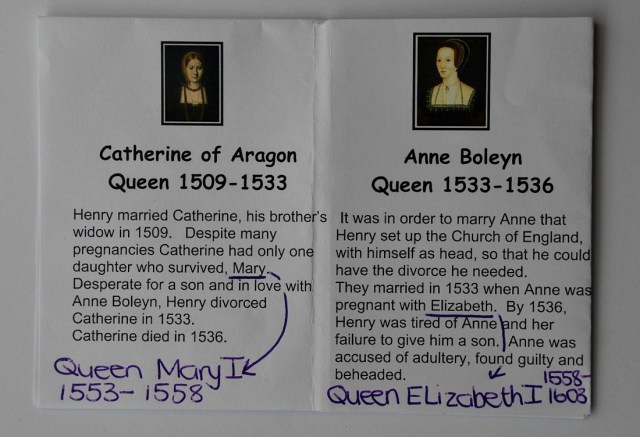 Catherine of Aragon
Queen 1509-1533
Henry married Catherine, his brother's
widow in 1509. Despite many
pregnancies Catherine had only one
daughter who survived, Mary.
Desperate for a son and in love with
Anne Boleyn, Henry divorced
Catherine in 1533.
Catherine died in 1536.
Queen Mary I
1553-1558
Anne Boleyn
Queen 1533-1536
It was in order to marry Anne that
Henry set up the Church of England,
with himself as head, so that he could
have the divorce he needed.
They married in 1533 when Anne was
pregnant with Elizabeth. By 1536,
Henry was tired of Anne and her
failure to give him a son. Anne was
accused of adultery, found guilty and
beheaded.
Queen ELizabeth I
1558-
1603